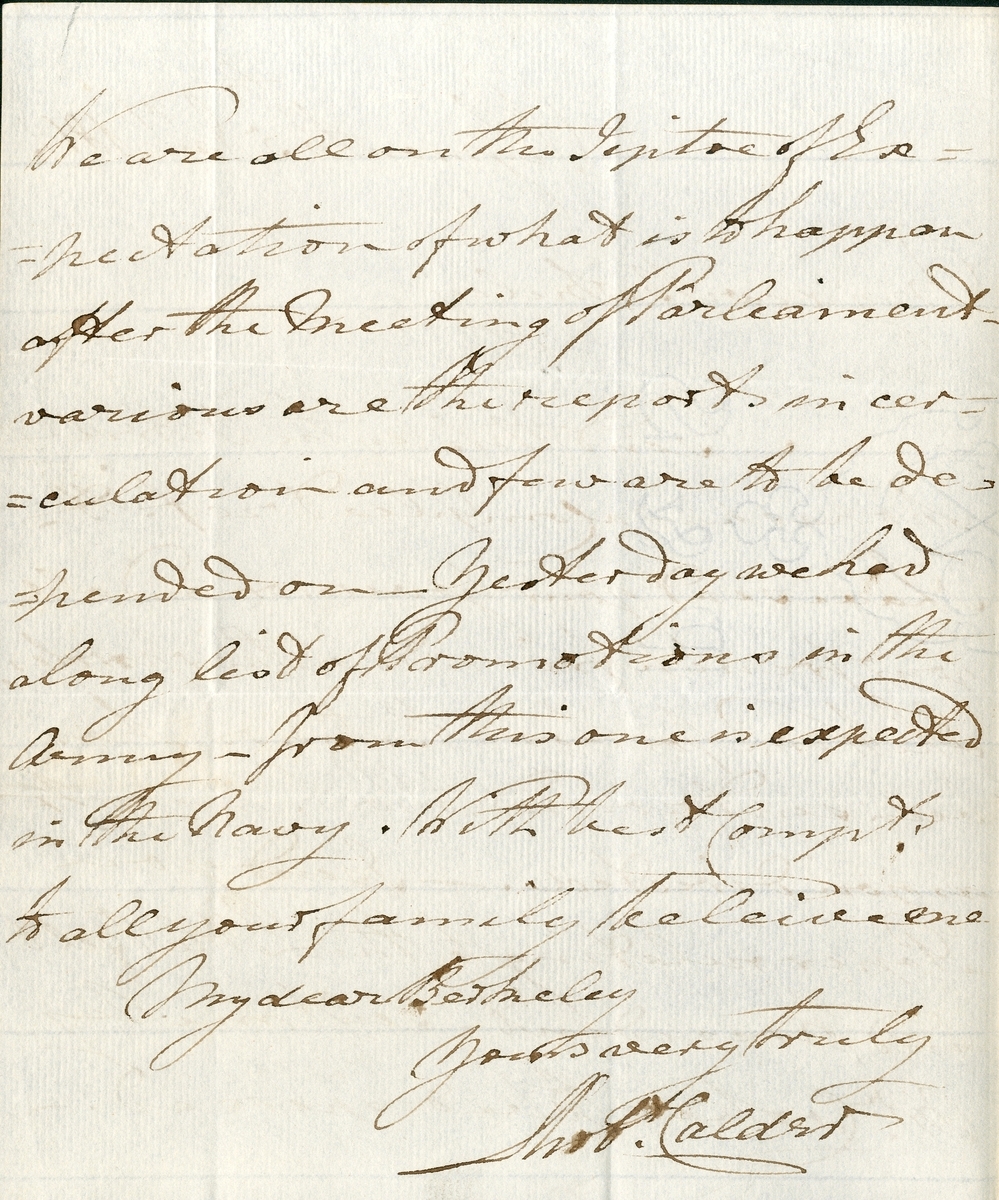 We are all on the Tiptoe of Ex=
=pectation of what is to happen
after the Meeting of Parliament-
various are the reports in cer=
=culation and few are to be de=
=pended on - Yesterday we had
along list of Promotions in the
Army - from this one is expected
in the Navy. With best Compts.
to all your family beleive me
My dear Berkeley
Yours very truly
Robt. Calder